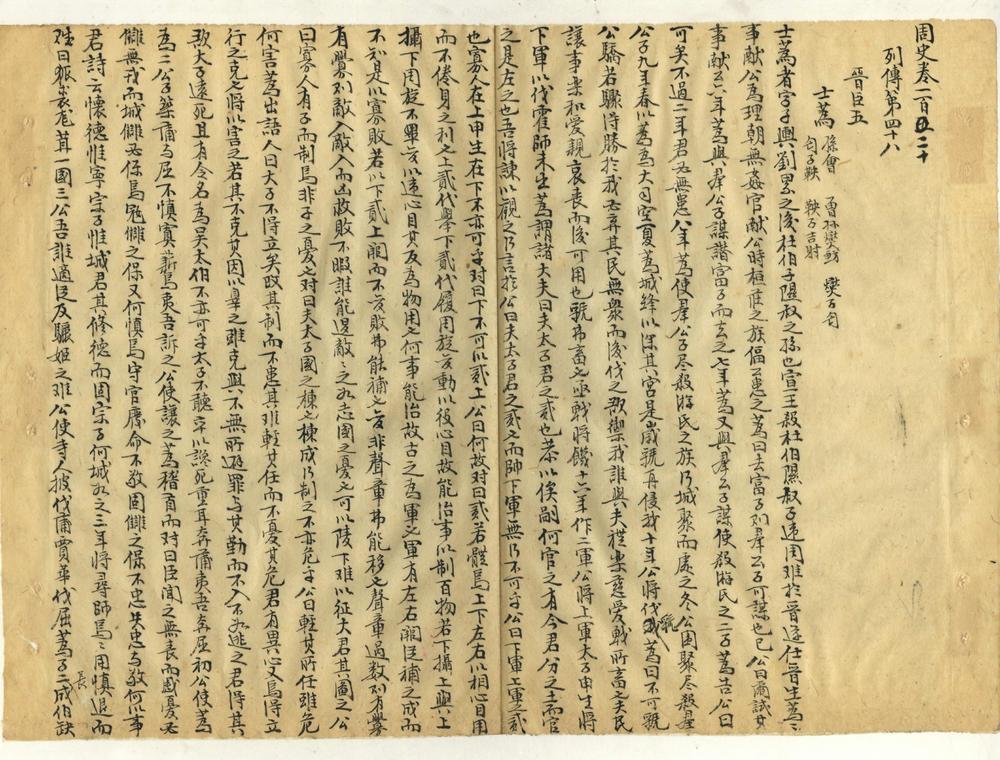 周史卷一百五二十
列傳第四十八
晉臣五
士蒍 孫會 會孫燮魴 燮子匄
匄子鞅 鞅子吉射
士蒍者字子輿劉累之後杜伯子隰叔之孫也宣王殺杜伯隰叔子違周難於晉遂仕晉生蒍蒍
事献公為理朝無姦官献公時桓莊之族偪公患之蒍曰去富子則羣公子可謀也已公曰爾試其
事献公六年蒍與羣公子謀譖富子而去之七年蒍又與羣公子謀使殺游氏之二子蒍告公曰
可矣不過二年君必無患八年蒍使羣公子盡殺游氏之族乃城聚而處之冬公圍聚尽殺羣
公子九年春以蒍為大司空夏蒍城絳以深其宮是歲虢再侵我十年公將伐虢蒍曰不可虢
公驕若驟得勝於我必弃其民無衆而後伐之欲禦我誰與夫禮樂慈愛戰所畜也夫民
讓事樂和愛親哀喪而後可用也虢弗畜也亟戰將饑十六年作二軍公將上軍太子申生將
下軍以伐霍師未出蒍謂諸大夫曰夫太子君之貳也恭以俟嗣何官之有今君分之土而官
之是左之也吾將諫以觀之乃言於公曰夫太子君之貳也而帥下軍無乃不可乎公曰下軍上軍之貳
也寡人在上申生在下不亦可乎對曰下不可以貳上公曰何故對曰貳若體焉上下左右以相心目用
而不倦身之利也上貳代舉下貳代履周旋変動以役心目故能治事以制百物若下攝上與上
攝下周旋不舉変以違心目其反為物用也何事能治故古之為軍也軍有左右闕從補之成而
不知是以寡敗若以下貳上闕而不変敗弗能補也変非聲章弗能移也聲章過数則有釁
有釁則敵入敵入而凶救敗不暇誰能退敵敵之如志国之憂也可以陵小難以征大君其圖之公
曰寡人有子而制焉非子之憂也對曰夫太子國之棟也棟成乃制之不亦危乎公曰輕其所任雖危
何害蒍出語人曰太子不得立矣改其制而不患其难輕其任而不憂其危君有異心又焉得立
行之克也將以害之若其不克其因以罪之雖克與不無所避罪与其勤而不入不如逃之君得其
欲太子遠死且有令名為吳太伯不亦可乎太子不聽卒以讒死重耳奔蒲夷吾奔屈初公使蒍
為二公子築蒲与屈不慎寘薪焉夷吾訴之公使讓之蒍稽首而對曰臣聞之無喪而慼憂必
讎無戎而城讎必保焉寇讎之保又何慎焉守官廢命不敬固讎之保不忠失忠与敬何以事
君詩云懷德惟寧宗子惟城君其修德而固宗子何城如之三年將尋師焉焉用慎退而
賦曰狐裘尨茸一國三公吾誰適從及驪姬之難公使寺人披伐蒲賈華伐屈蒍子二成伯缺
長